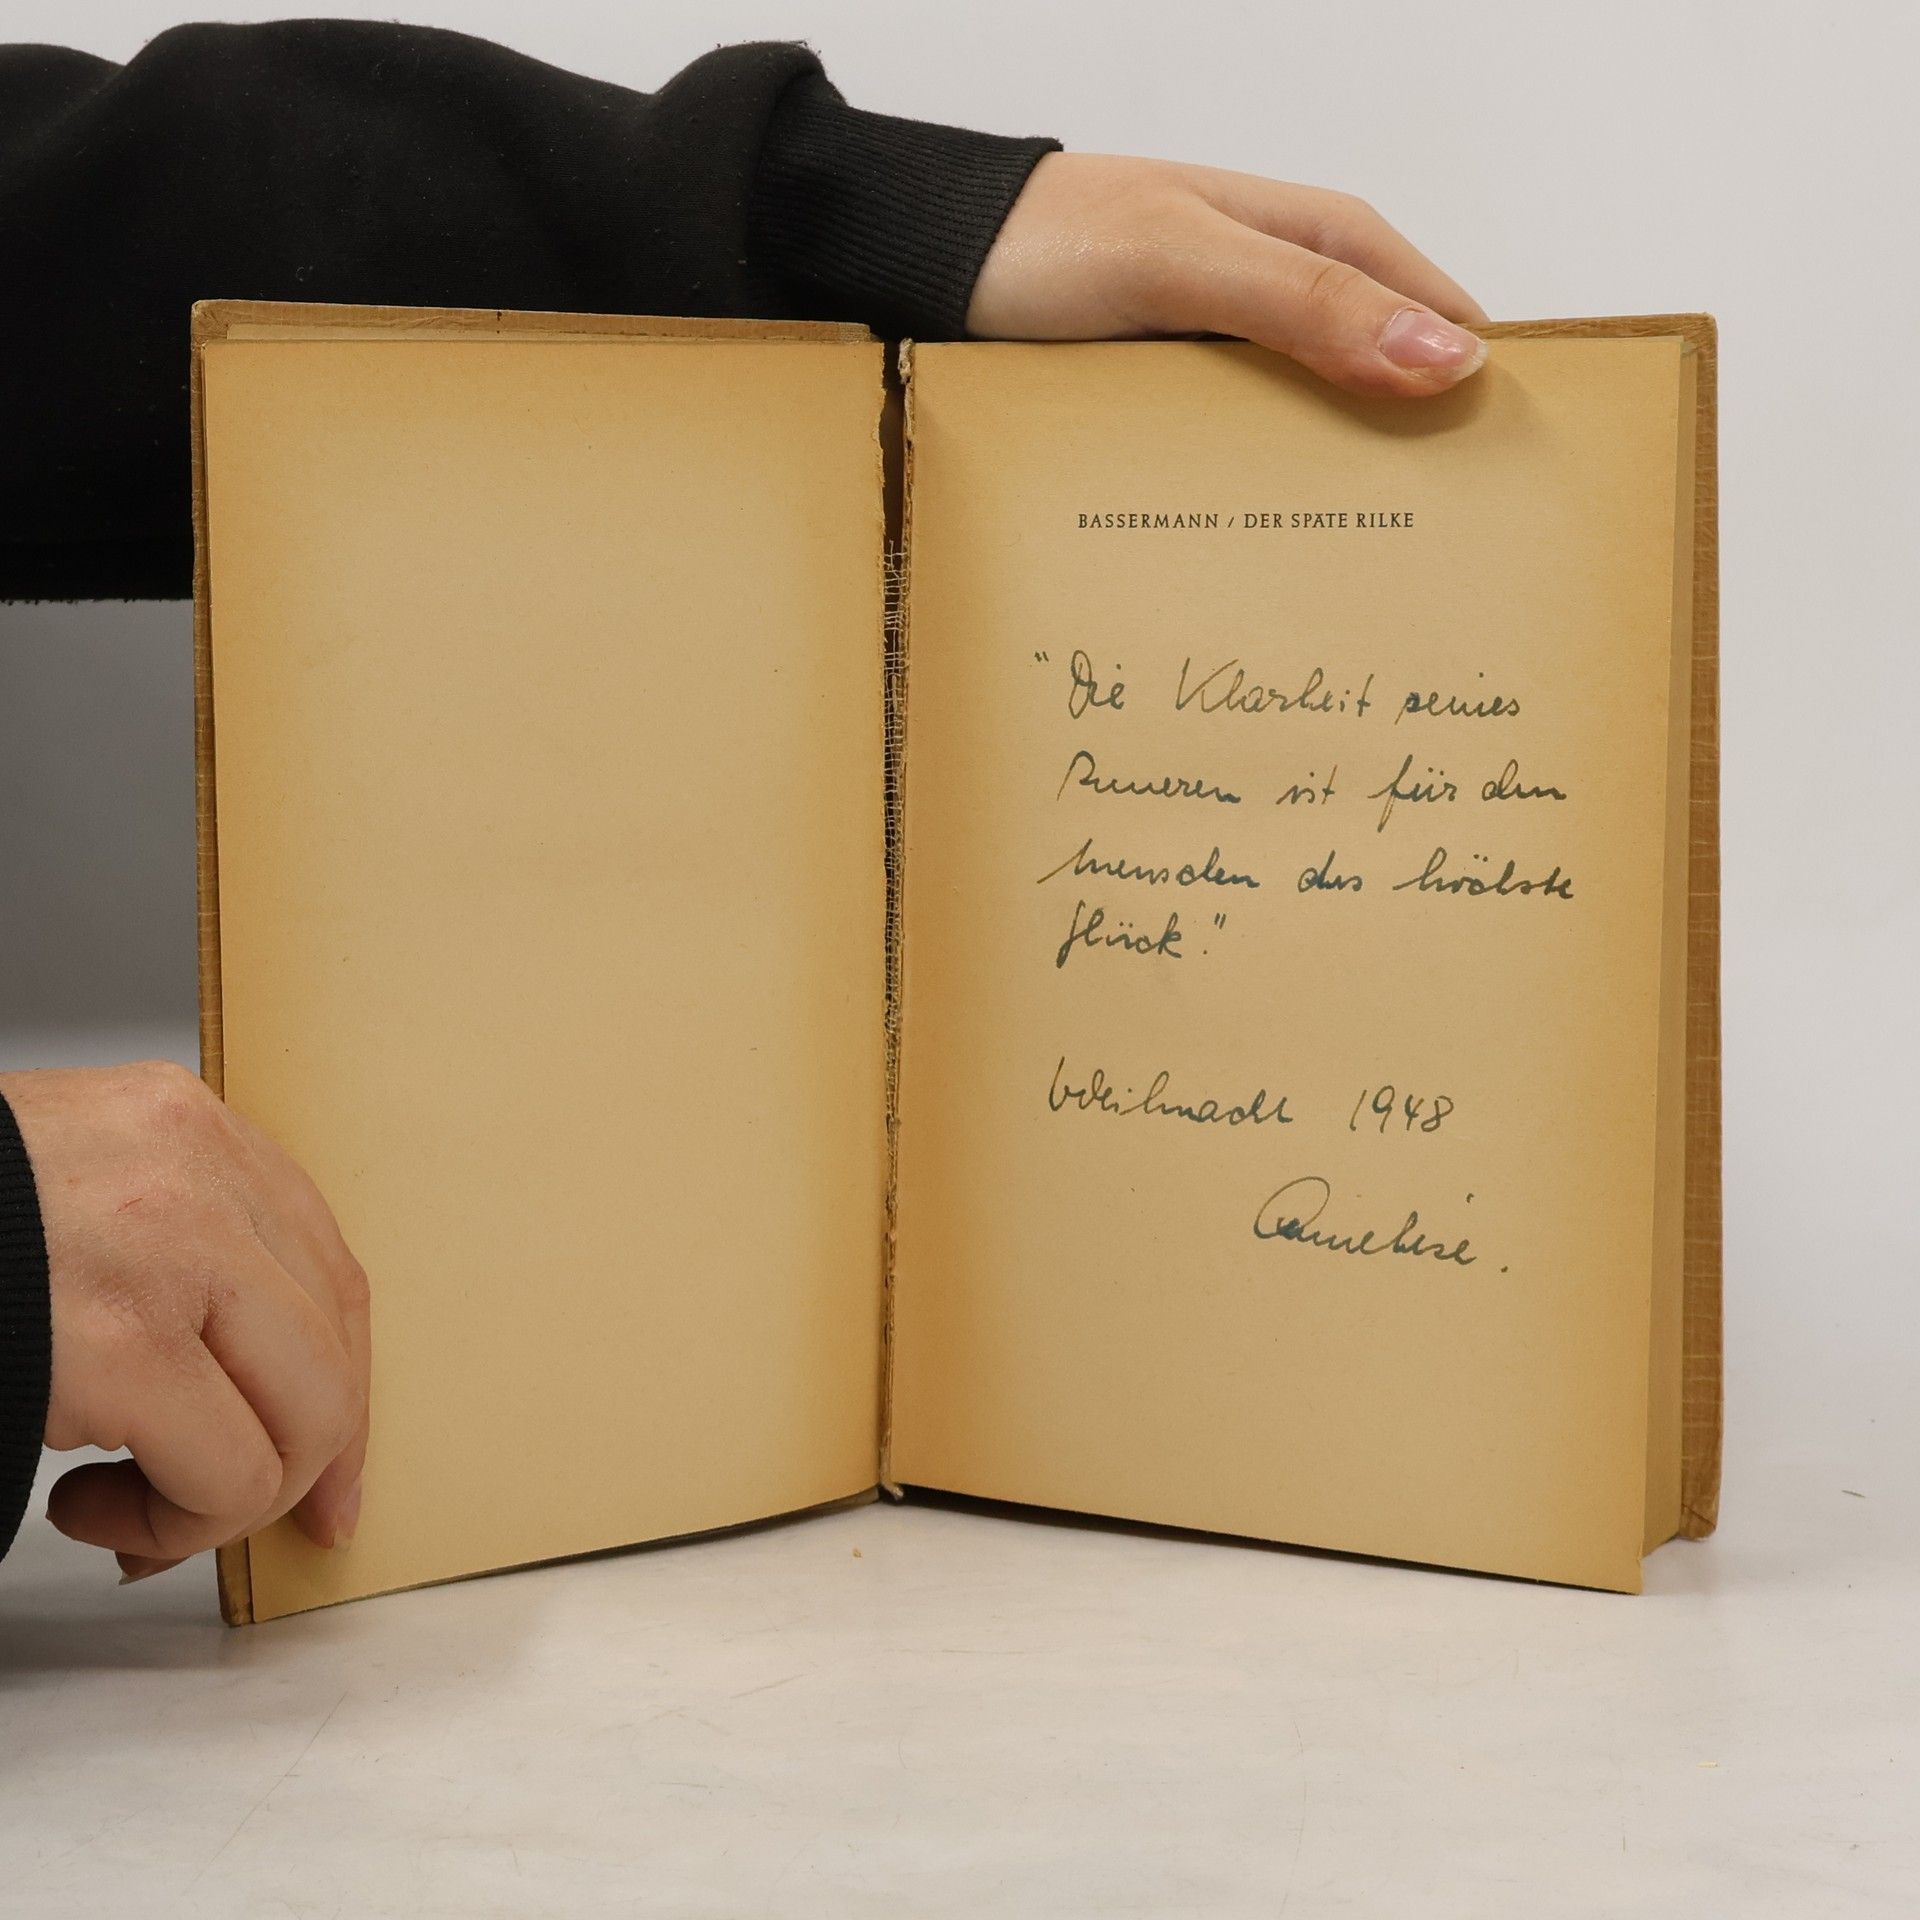 BASSERMANN / DER SPÄTE RILKE
"Die Klarheit seines
Inneren ist für den
Menschen das höchste
Glück."
Weihnacht 1948
Anneliese.